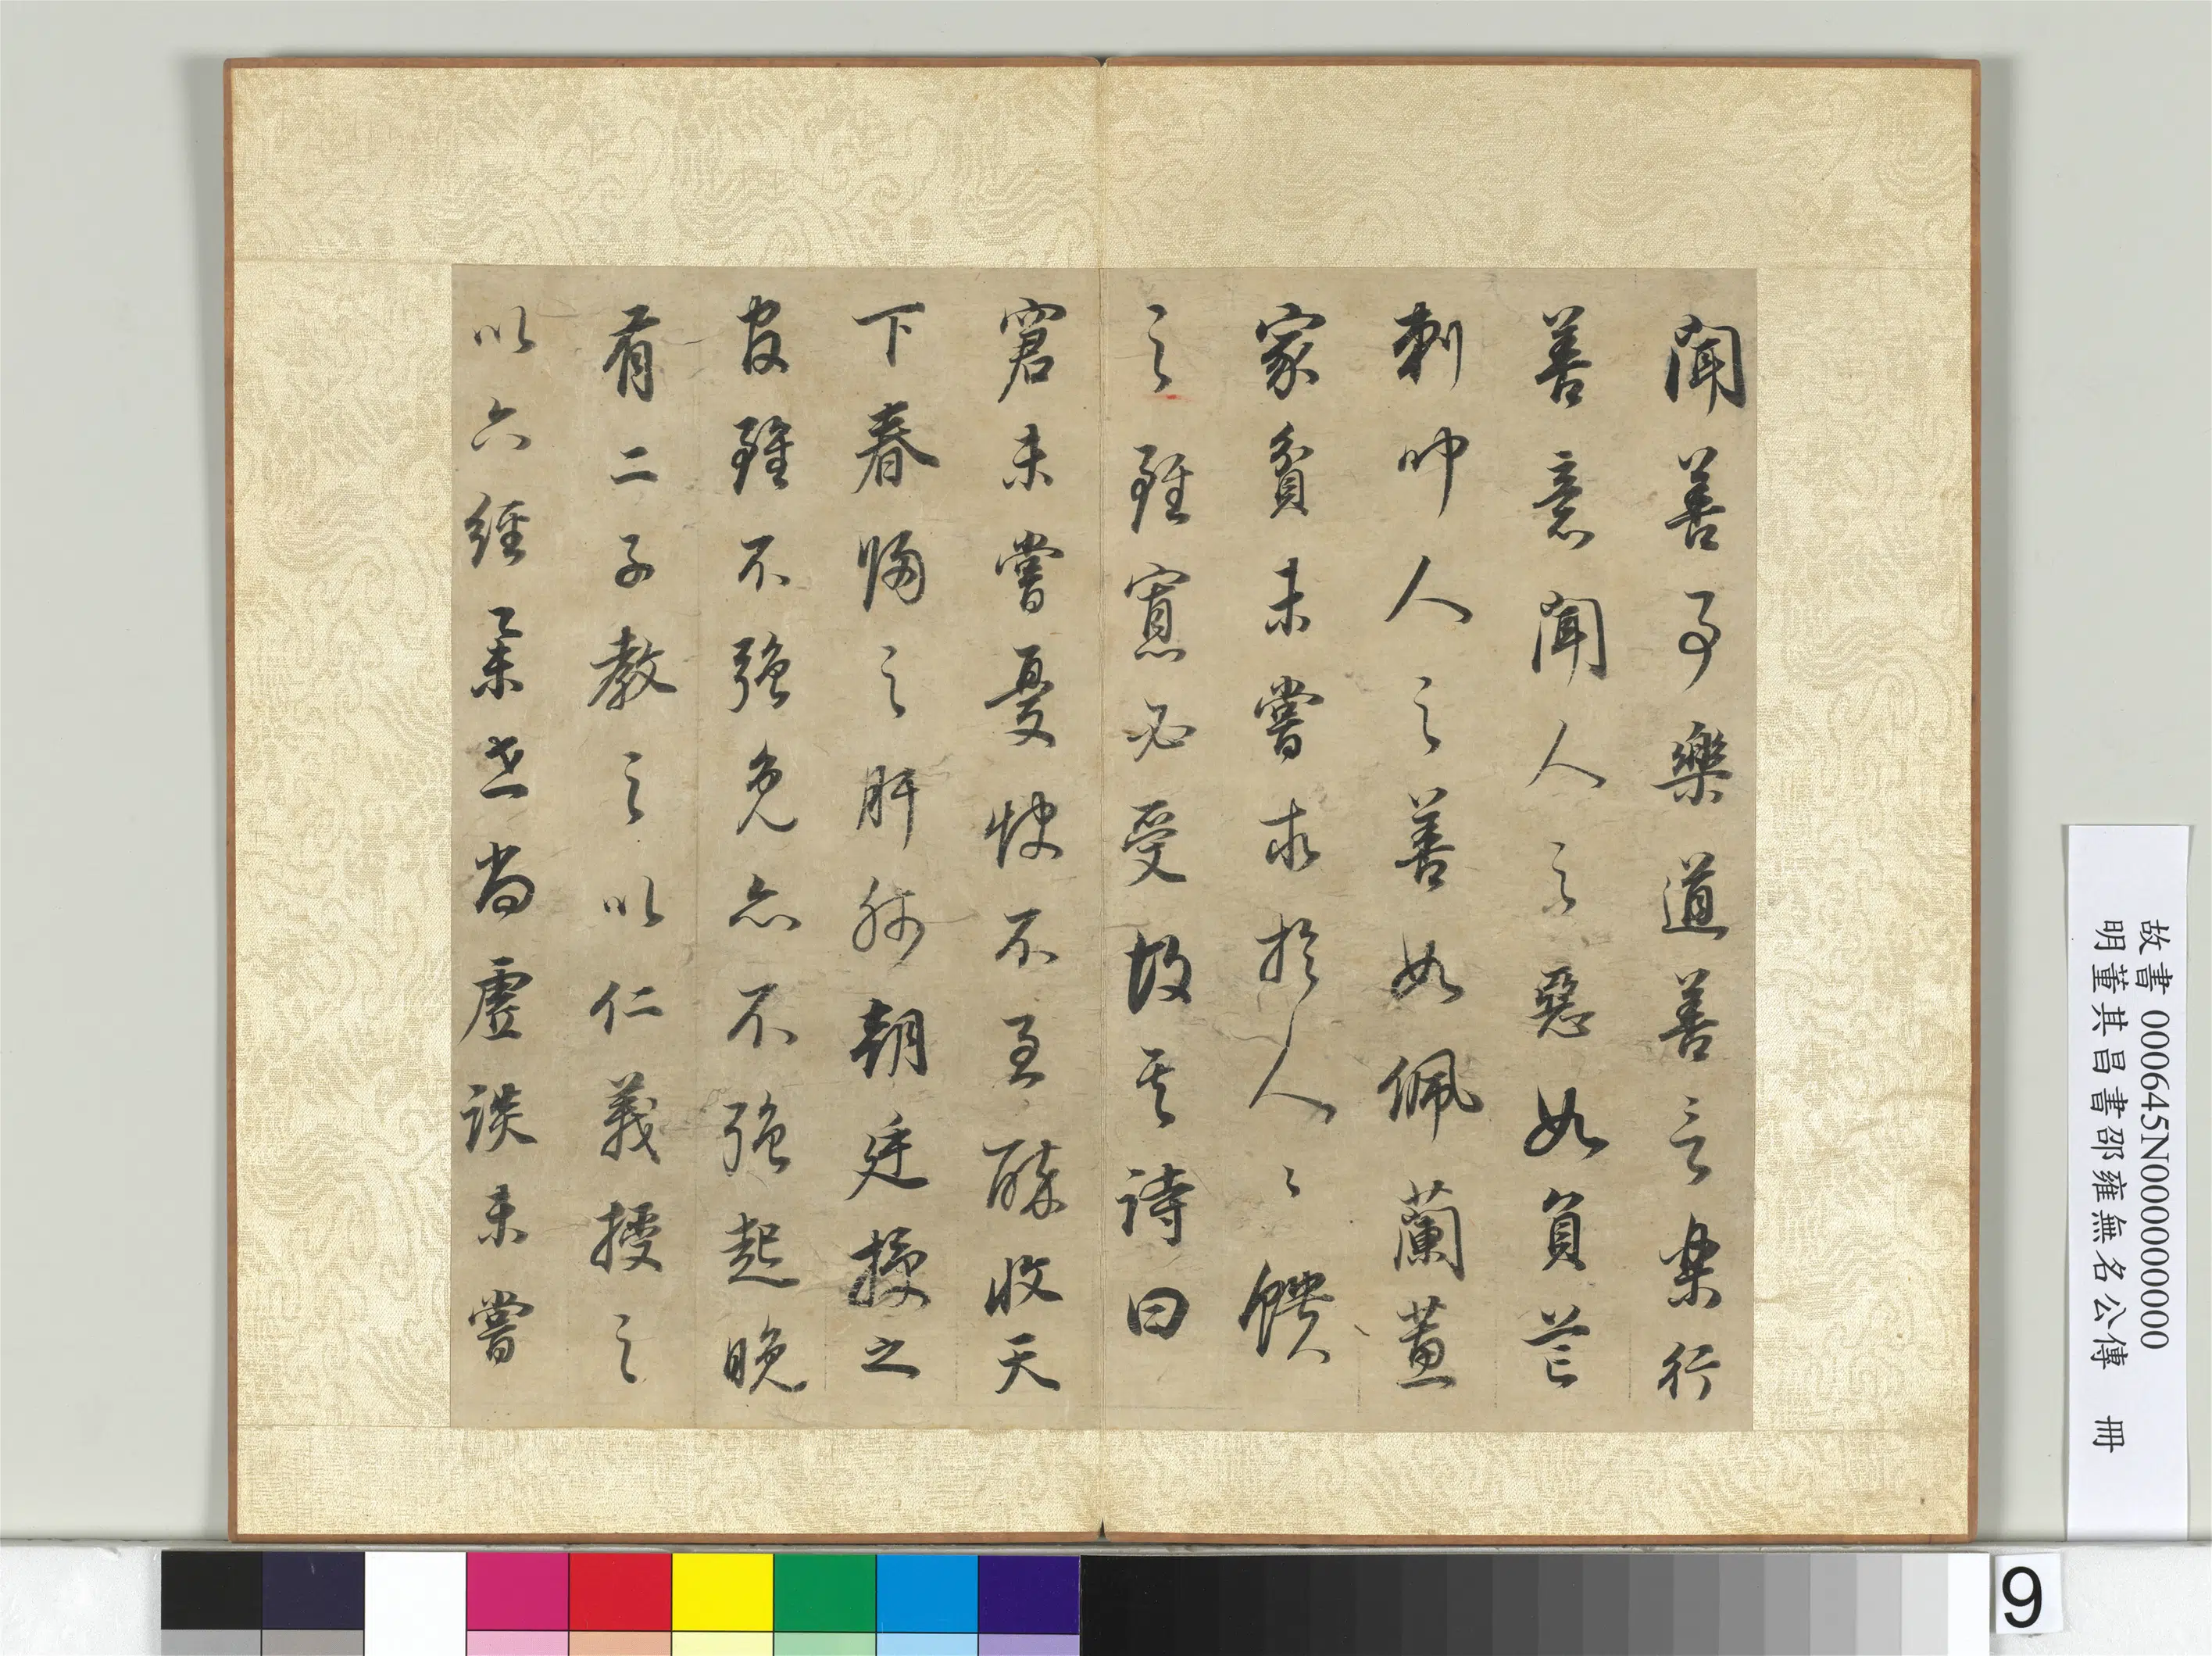 聞善事樂道善言樂行
善意聞人之惡如負芒
刺聞人之善如佩蘭蕙
家貧未嘗求於人人饋
之雖寡必受故其詩曰
窘未嘗憂飲不至醉收天
下春歸之肝肺朝廷授之
官雖不強免亦不強起晚
有二子教之以仁義授之
以六經舉世尚虛談未嘗
故書 000645N000000000
明董其昌書邵雍無名公傳 冊
9